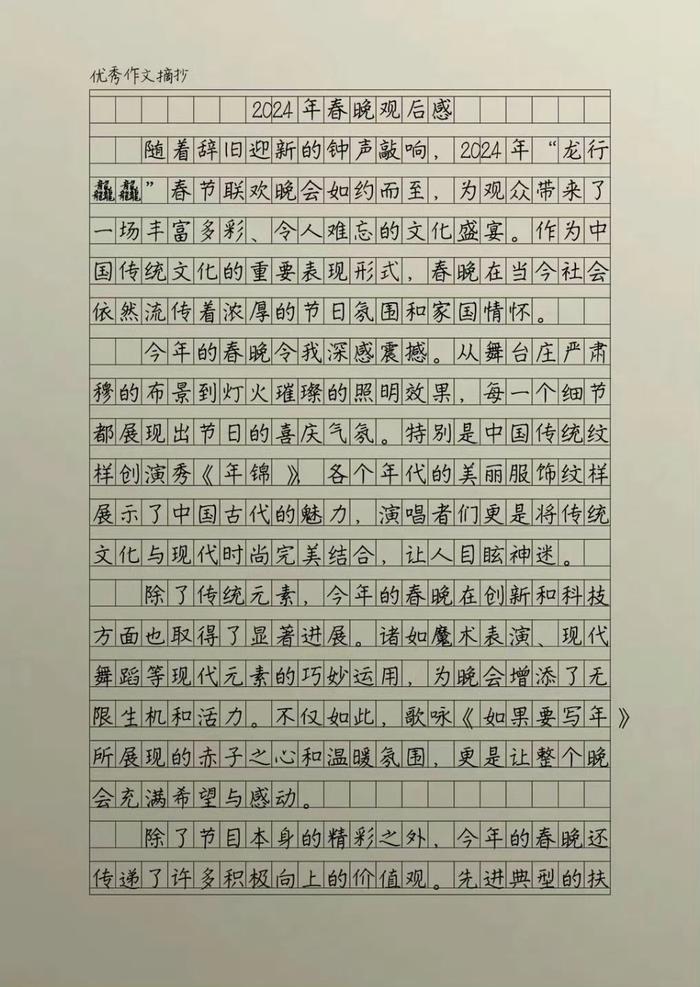 优秀作文摘抄
2024年春晚观后感
随着辞旧迎新的钟声敲响，2024年“龙行
龘龘”春节联欢晚会如约而至，为观众带来了
一场丰富多彩、令人难忘的文化盛宴。作为中
国传统文化的重要表现形式，春晚在当今社会
依然流传着浓厚的节日氛围和家国情怀。
今年的春晚令我深感震撼。从舞台庄严肃
穆的布景到灯火璀璨的照明效果，每一个细节
都展现出节日的喜庆气氛。特别是中国传统纹
样创演秀《年锦》，各个年代的美丽服饰纹样
展示了中国古代的魅力，演唱者们更是将传统
文化与现代时尚完美结合，让人目眩神迷。
除了传统元素，今年的春晚在创新和科技
方面也取得了显著进展。诸如魔术表演、现代
舞蹈等现代元素的巧妙运用，为晚会增添了无
限生机和活力。不仅如此，歌咏《如果要写年》
所展现的赤子之心和温暖氛围，更是让整个晚
会充满希望与感动。
除了节目本身的精彩之外，今年的春晚还
传递了许多积极向上的价值观。先进典型的扶